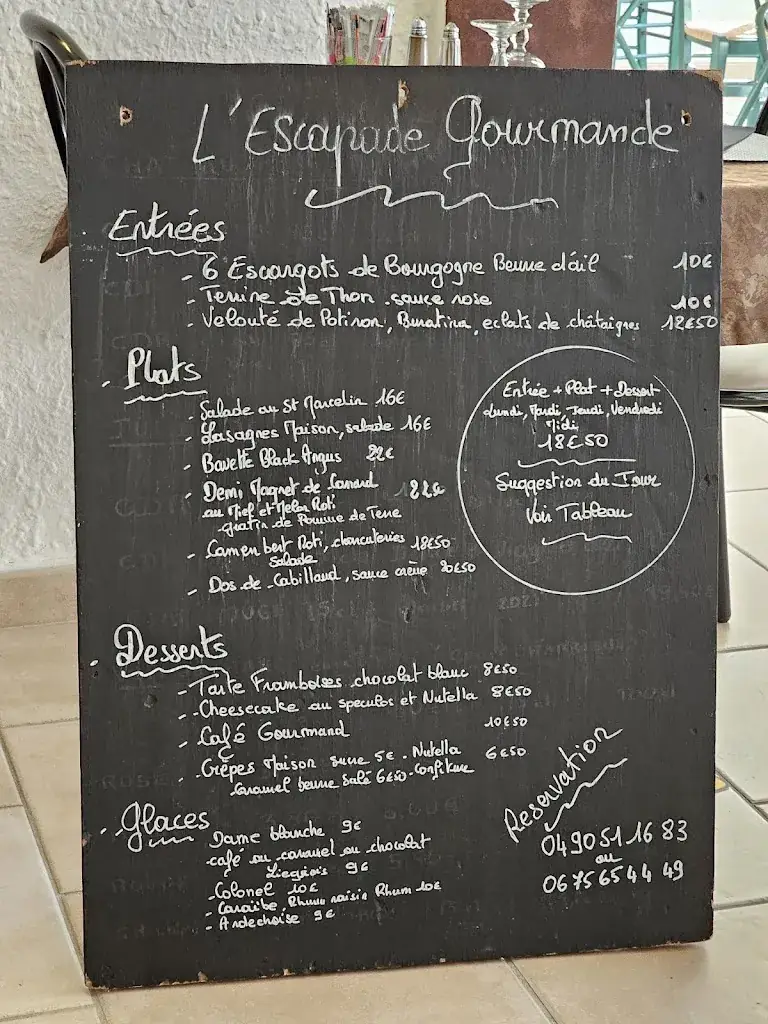 L'Escapade Gourmande
Entrées
- 6 Escargots de Bourgogne Beurre d'ail 10€
- Terrine de Thon, sauce rose 10€
- Velouté de Potiron, Buratina, eclats de châtaignes 12€50
- Plats
- Salade au St Marcelin 16€
- Lasagnes Maison, salade 16€
- Bavette Black Angus 22€
- Demi Magret de Canard 22€
au Miel et Melon Roti
gratin de Pomme de Terre
- Camembert Roti, charcuteries 18€50
salade
- Dos de Cabillaud, sauce crème 20€50
Entrée + Plat + Dessert
Lundi, Mardi, Jeudi, Vendredi
Midi
18€50
Suggestion du Jour
Voir Tableau
- Desserts
- Tarte Framboises chocolat blanc 8€50
- Cheesecake au speculos et Nutella 8€50
- Café Gourmand 10€50
- Crêpes Maison sucre 5€ - Nutella 6€50
Caramel beurre Salé 6€50 - Confiture
- Glaces
Dame blanche 9€
café ou caramel ou chocolat
Liegeois 9€
- Colonel 10€
- Caraïbe, Rhum raisin Rhum 10€
- Ardechoise 9€
Reservation
04 90 51 16 83
ou
06 75 65 44 49